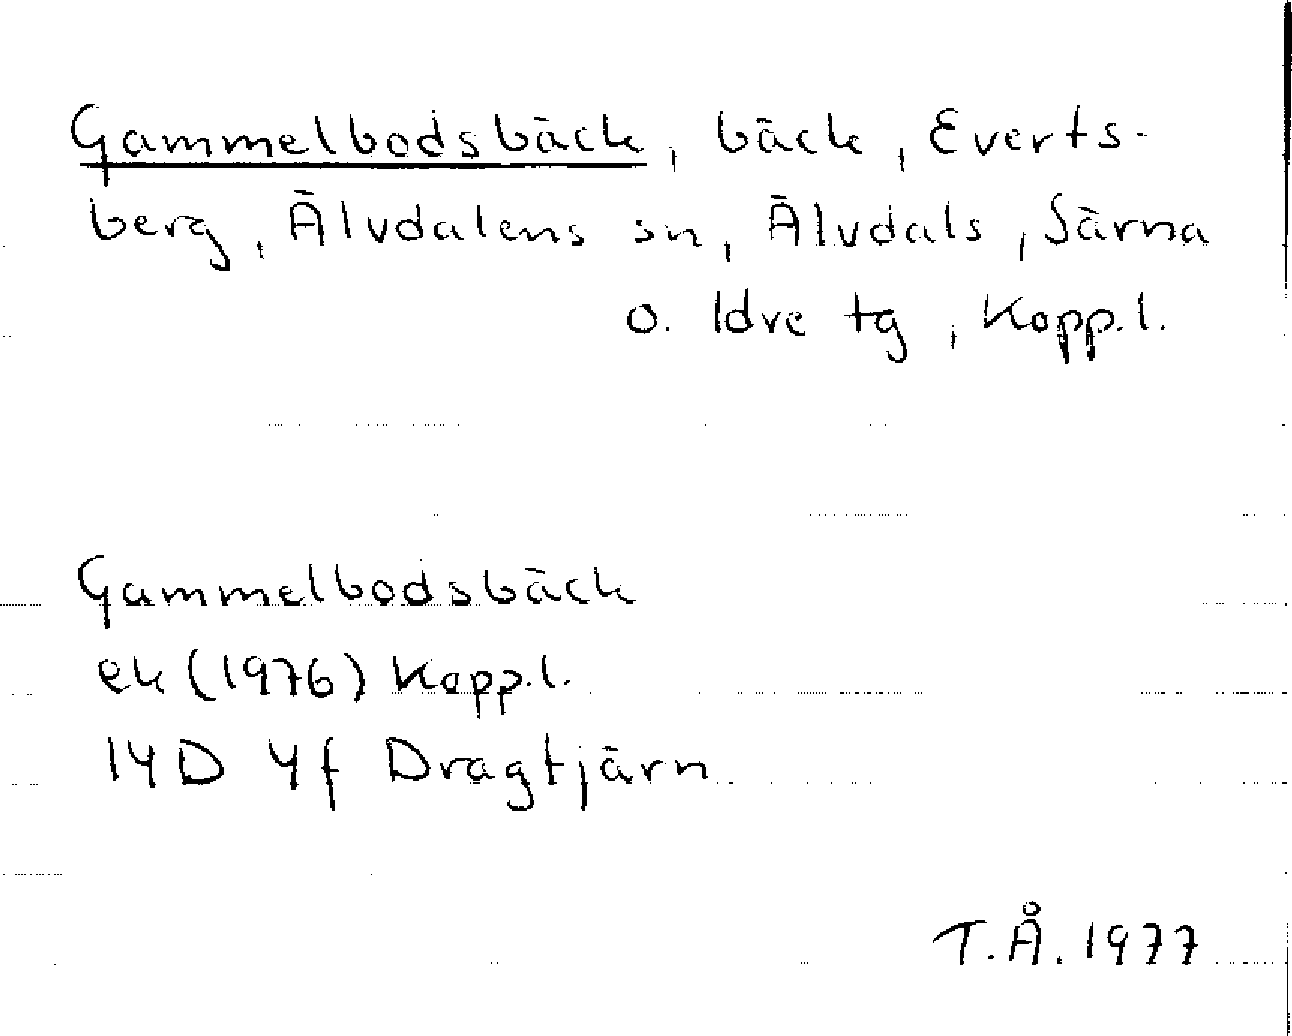 Gammelbodsbäck, bäck, Everts-
berg, Älvdalens sn, Älvdals, Särna
o. Idre tg, Kopp.l.
Gammelbodsbäck
ek (1976) Kopp.l.
14D 4f Dragtjärn
T.Å. 1977